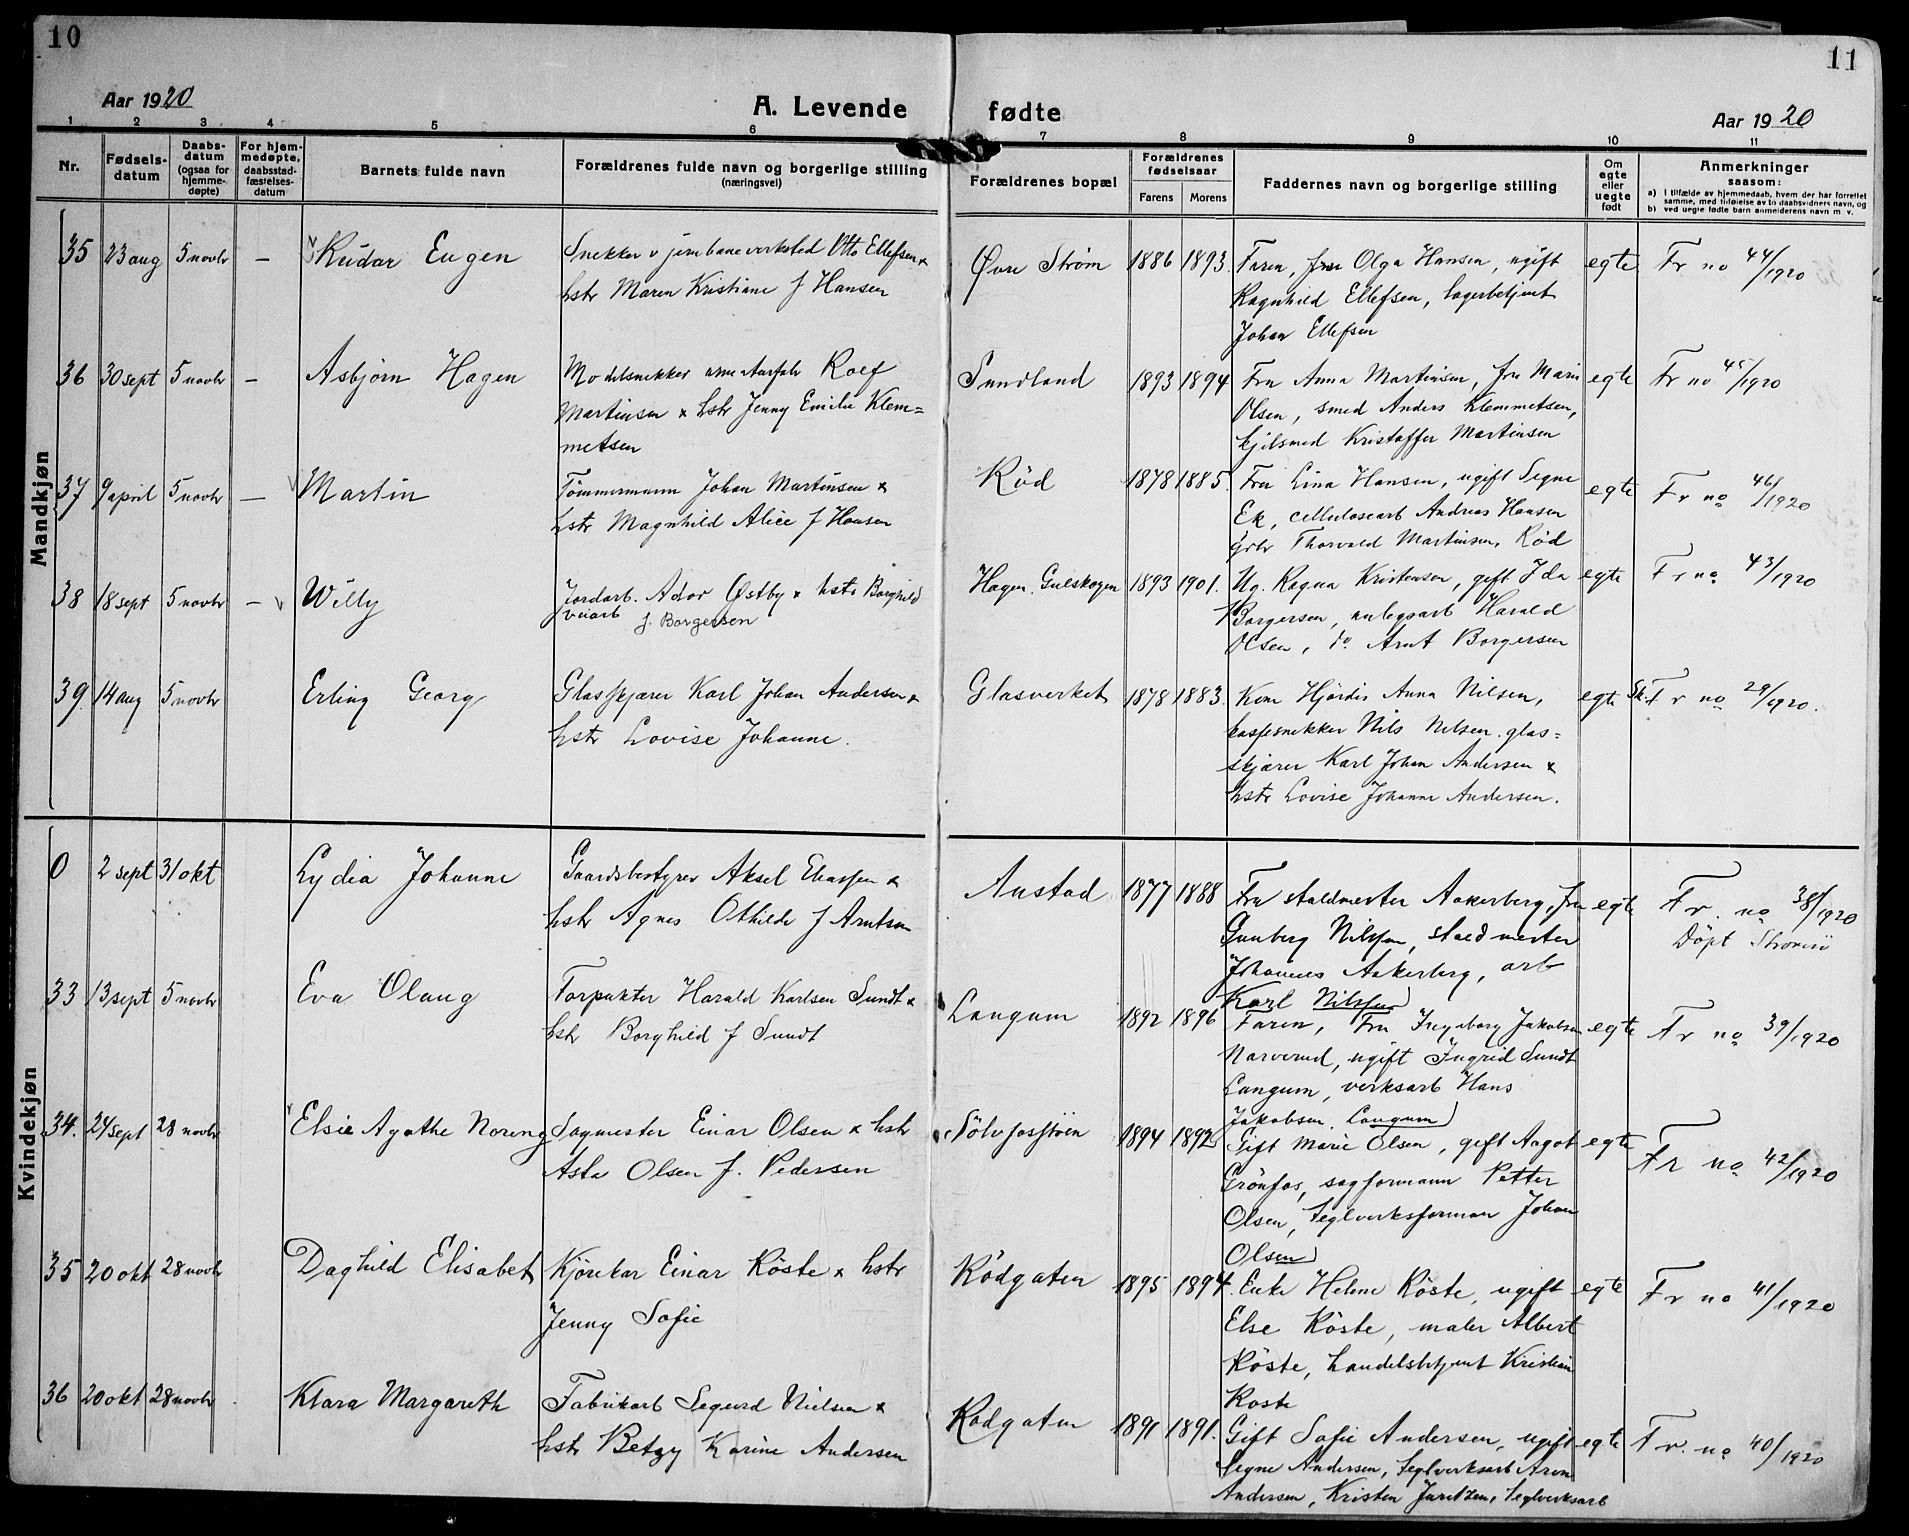 10
11
Aar 1920
A. Levende fødte
Aar 1920
1 2 3 4 5 6 7 8 9 10 11
Nr.
Fødsels-
datum
Daabs-
datum
(ogsaa for
hjemme-
døpte)
For hjem-
medøpte,
daabsstad-
fæstelses-
datum
Barnets fulde navn
Forældrenes fulde navn og borgerlige stilling
(næringsvei)
Forældrenes bopæl
Forældrenes
fødselsaar
Farens Morens
Faddernes navn og borgerlige stilling
Om
egte
eller
uegte
født
Anmerkninger
saasom:
a) I tilfælde av hjemmedaab, hvem der har forrettet
samme, med tilføielse av to daabsvidners navn, og
b) ved uegte fødte barn anmelderens navn m. v.
Mandkjøn
35 23 aug 5 novbr — Reidar Eugen
Snekker v jernbaneverksted Otto Ellefsen &
hstr Maren Kristiane f Hansen
Øvre Strøm 1886 1893.
Faren, fru Olga Hansen, ugift
Ragnhild Ellefsen, lagerbetjent
Johan Ellefsen
egte Fr no 44/1920
36 30 sept 5 novbr — Asbjørn Hagen
Modelsnekker armaturfabr Rolf
Martinsen & hstr Jenny Emilie Klem=
metsen
Sundland 1893 1894
Fru Anna Martinsen, fru Marie
Olsen, smed Anders Klemmetsen,
kjelsmed Kristoffer Martinsen
egte Fr no 45/1920
37 9 april 5 novbr — Martin
Tømmermann Johan Martinsen &
hstr Magnhild Alice f Hansen
Rød 1878 1885.
Fru Lina Hansen, ugift Signe
Ek, cellulosearb Andreas Hansen
grbr Thorvald Martinsen, Rød
egte Fr no 46/1920
38 18 sept 5 novbr — Willy
Jordarb. Ador Østby & hstr Borghild
veiarb f. Borgersen
Hagen, Gulskogen 1893 1901.
Ug. Ragna Kristensen, gift Ida
Borgersen, anlegsarb Harald
Olsen, do Arnt Borgersen
egte Fr no 43/1920
39. 14 aug 5 novbr Erling Georg
Glasskjærer Karl Johan Andersen &
hstr Lovise Johanne.
Glasverket 1878 1883.
Kone Hjørdis Anna Nilsen,
kassesnekker Nils Nilsen. glas=
skjærer Karl Johan Andersen &
hstr Lovise Johanne Andersen.
egte Sk. Fr no 29/1920.
Kvindekjøn
0 2 sept 31 okt Lydia Johanne
Gaardsbestyrer Aksel Eliassen &
hstr Agnes Othilde f Arntsen
Austad 1877 1888
Fru staldmester Aakerberg, fru
Gunberg Nilssen, staldmester
Johannes Aakerberg, arb
Karl Nilssen
egte Fr. no 38/1920
Døpt Strømsø
33 13 sept 5 novbr Eva Olaug
Forpakter Harald Karlsen Sundt &
hstr Borghild f Sundt
Langum 1892 1896
Faren, Fru Ingeborg Jakobsen
Narverud, ugift Ingrid Sundt
Langum, verksarb Hans
Jakobsen. Langum
egte Fr no 39/1920
34. 24 sept 28 novbr Elsie Agathe Noreng
Sagmester Einar Olsen & hstr
Asta Olsen f. Pedersen
Sølvfastøen 1894 1892
Gift Marie Olsen, gift Aagot
Grønfos, sagformann Petter
Olsen, Teglverksforman Johan
Olsen
egte Fr no 42/1920
35 20 okt 28 novbr Daghild Elisabet
Kjørekar Einar Røste & hstr
Jenny Sofie
Rødgaten 1895 1894.
Enke Helene Røste, ugift
Else Røste, maler Albert
Røste, handelsbetjent Kristian
Røste
egte Fr no 41/1920
36 20 okt 28 novbr Klara Margareth
Fabrikarb Sigurd Nielsen &
hstr Betzy Karine Andersen
Rødgaten 1891 1891.
Gift Sofie Andersen, ugift
Signe Andersen, Teglverksarb Aron
Andersen, Kristen Juritzen, Teglverksarb
egte Fr. no 40/1920